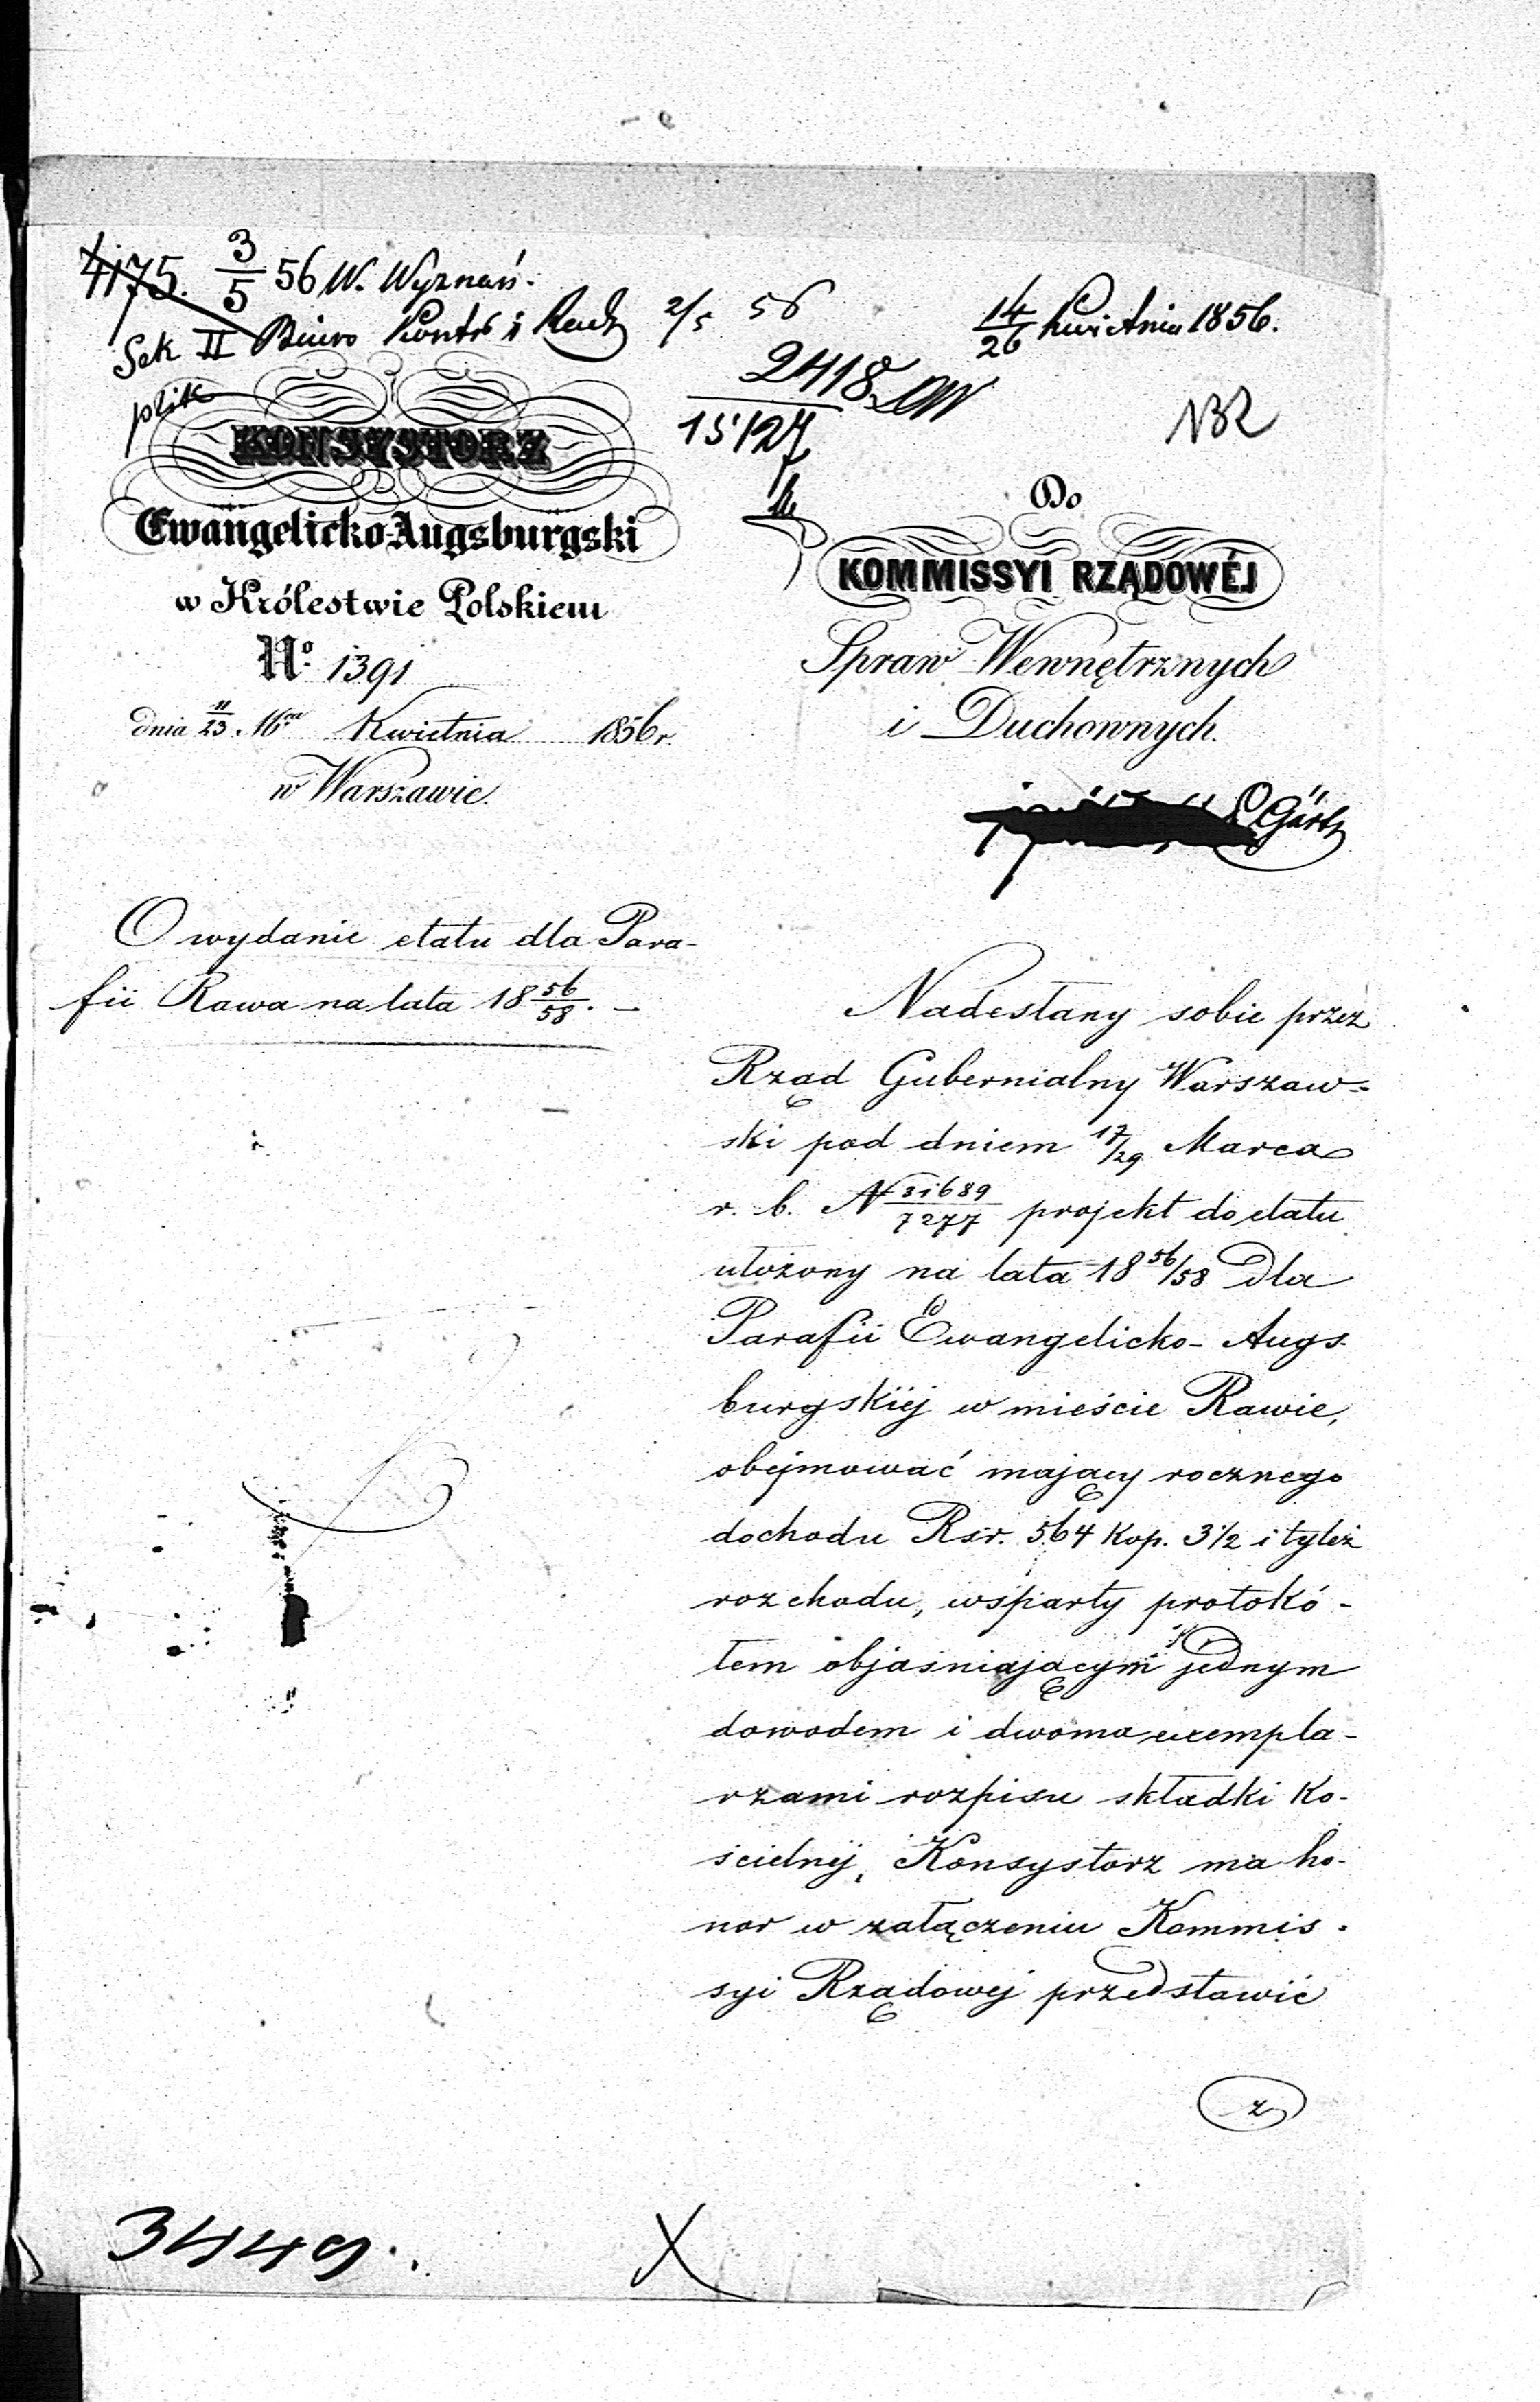 4175. 3/5 56 W. Wyznań.
Sek II Biuro Kontr i Rach 2/5 56
plik
14/26 Kwietnia 1856.
2418
15127
KONSYSTORZ
Ewangelicko-Augsburgski
w Królestwie Polskiem
No. 1391
dnia 11/23. Kwietnia 1856 r.
w Warszawie.
Do
KOMMISSYI RZĄDOWÉJ
Spraw Wewnętrznych
i Duchownych.
O wydanie etatu dla Para-
fii Rawa na lata 18 56/58. —
Nadesłany sobie przez
Rząd Gubernialny Warszaw-
ski pod dniem 17/29 Marca
r. b. N 31689/7277 projekt do etatu
ułożony na lata 18 56/58 dla
Parafii Ewangelicko-Augs-
burgskiéj w mieście Rawie,
obejmować mający rocznego
dochodu Rsr. 564 Kop. 3 1/2 i tyleż
rozchodu, wsparty protokó-
łem objaśniającym jednym
dowodem i dwoma exempla-
rzami rozpisu składki Ko-
ścielnéj, Konsystorz ma ho-
nor w załączeniu Kommis-
syi Rządowej przedstawić
z
3449.
X